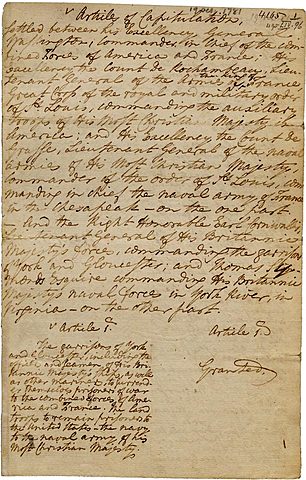 Article of Capitulation,
settled between his Excellency General
Washington, Commander in Chief of the com-
bined Force of America and France; His
Excellency the Count de Rochambeau, Lieu-
tenant General of the of France
Great Cross of the royal and military Order
of St. Louis, commanding the auxiliary
Troops of His Most Christian Majesty in
America; and His Excellency the Count de
Grasse, Lieutenant General of the naval
armies of His Most Christian Majesty,
commander of the order of St. Louis, com-
manding in chief the naval army of France
in the Chesapeak - on the one Part
- And the Right Honorable Earl Cornwallis,
Lieutenant General of His Britannic
Majesty's Force, commanding the garrisons
of York and Gloucester; and Thomas Sy-
monds Esquire commanding His Britannic
Majesty's naval Force in York River, in
Virginia - on the other part.
Article 1.
The garrisons of York
and Gloucester, including the
officers and seamen of His Bri-
tannic Majesty's ships, as well
as other mariners to surrender
themselves prisoners of war
to the combined forces of Ame-
rica and France. The land
troops to remain prisoners to
the United States - the navy
to the naval army of his
Most Christian Majesty.
Article 1.
Granted.